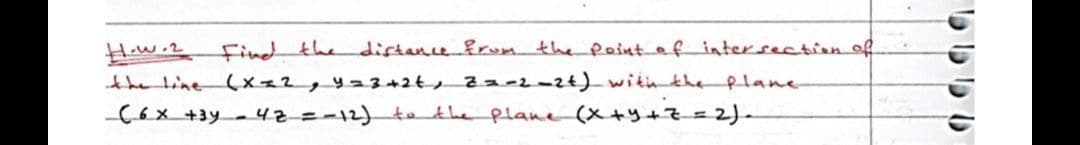 H.w.2 Find the distance from the point of intersection of
the line (x=2, y=3+2t, z=-2-2t) with the plane
(6x +3y -4z =-12) to the plane (x+y+z =2).